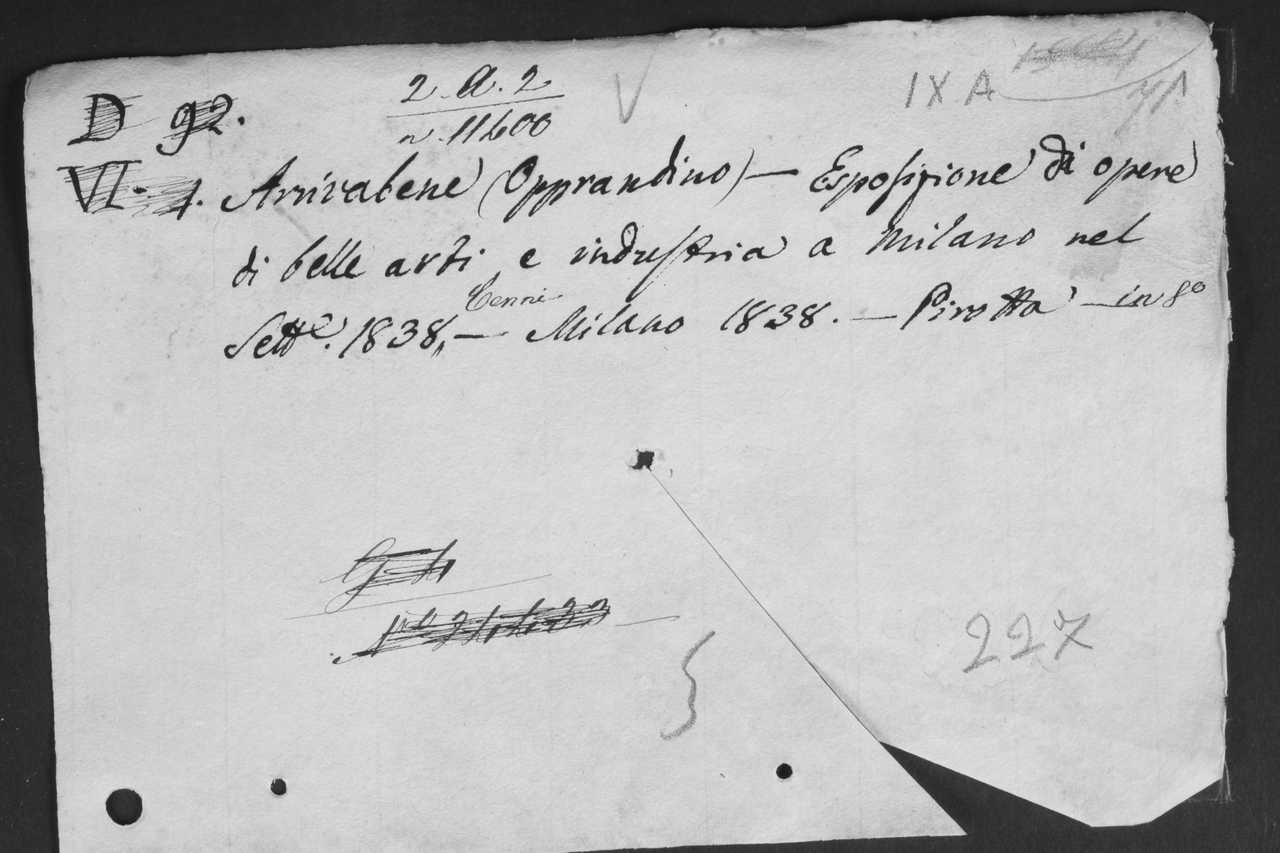 2. A. 2
IX A
D 92.
n. 11600
VI. 4. Arrivabene (Opprandino) — Esposizione di opere
di belle arti e industria a Milano nel
Sett.e 1838, Cenni — Milano 1838. — Pirotta — in 8o
227